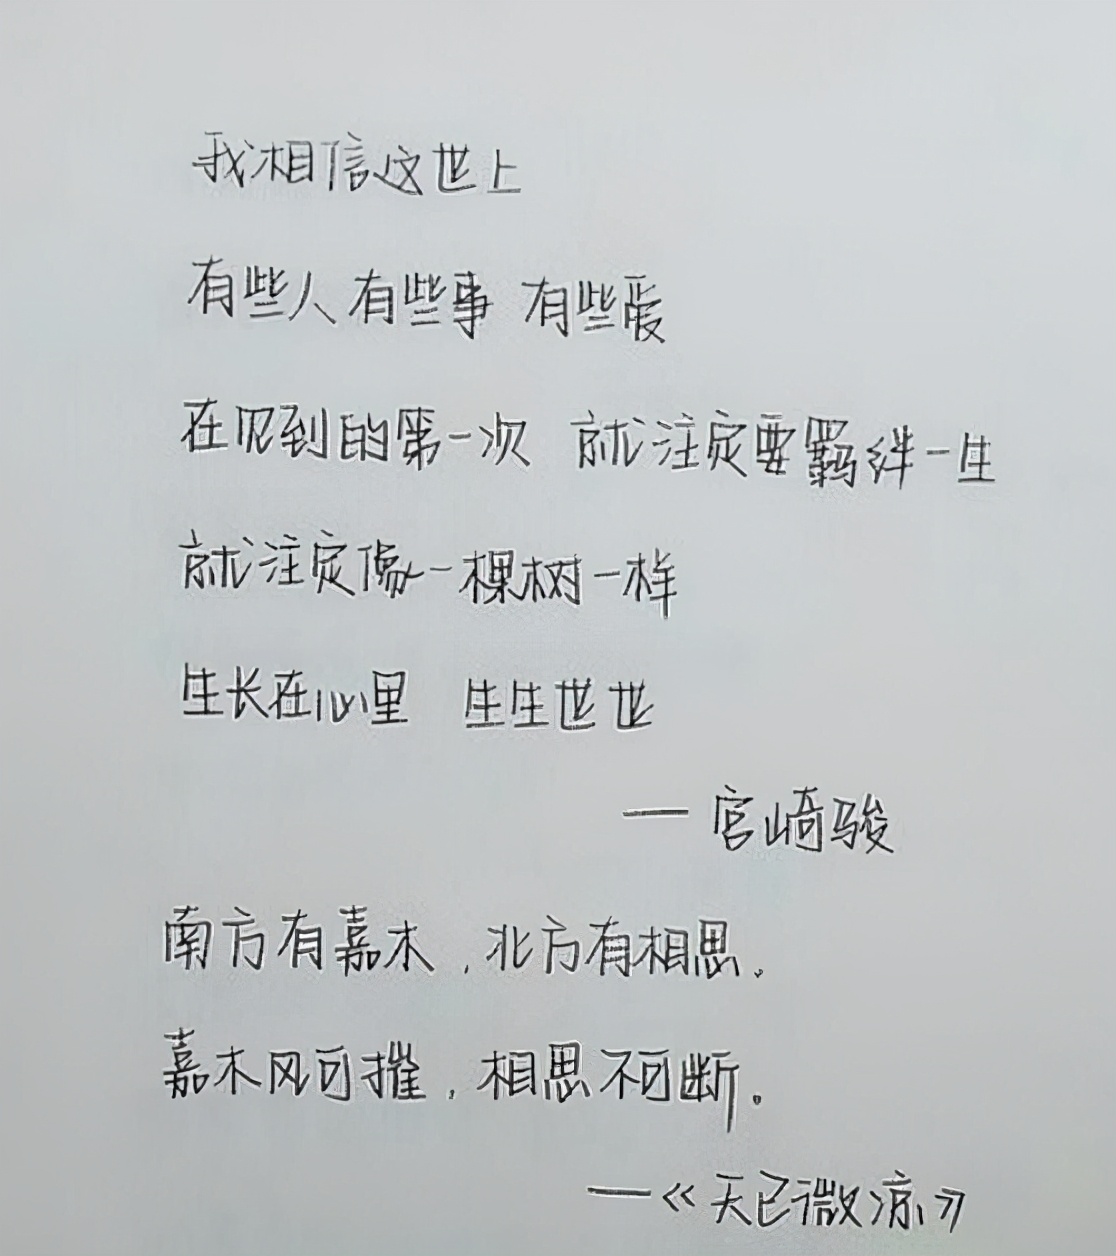 我相信这世上
有些人有些事 有些爱
在见到的第一次 就注定要羁绊一生
就注定像一棵树一样
生长在心里 生生世世
— 宫崎骏
南方有嘉木，北方有相思。
嘉木风可摧，相思不可断。
—《天已微凉》